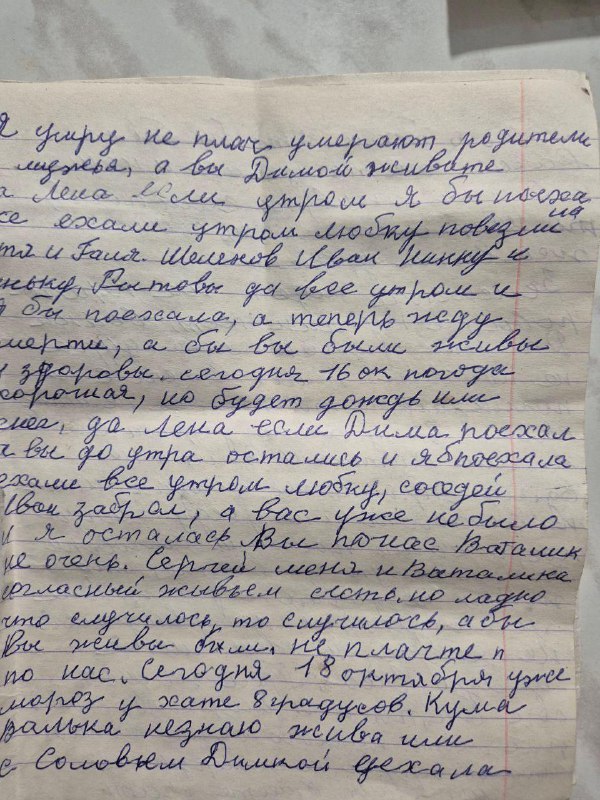 Я умру не плач умерают родители
мужья, а вы Димой живите
а Лена если утром я бы поеха
се ехали утром любку повезли на
тя и Галя. Шеленов Иван Нинку и
нька, Рытовы да все утром и
я бы поехала, а теперь жду
мерти, а бы вы были живы
и здоровы. сегодня 16 ок погода
хорошая, но будет дождь или
снег, да Лена если Дима поехал
а вы до утра остались и я б поехала
ехали все утром любку, соседей
Иван забрал, а вас уже не было
и я осталась Вы по нас Ваталик
не очень. Сергей меня и Виталика
согласный живьем сьесть, но ладно
что случилось, то случилось, абы
Вы живы были. не плачте п
по нас. Сегодня 18 октября уже
мороз у хате 8 градусов. Кума
Валька незнаю жива или
с Соловьем Димкой уехала